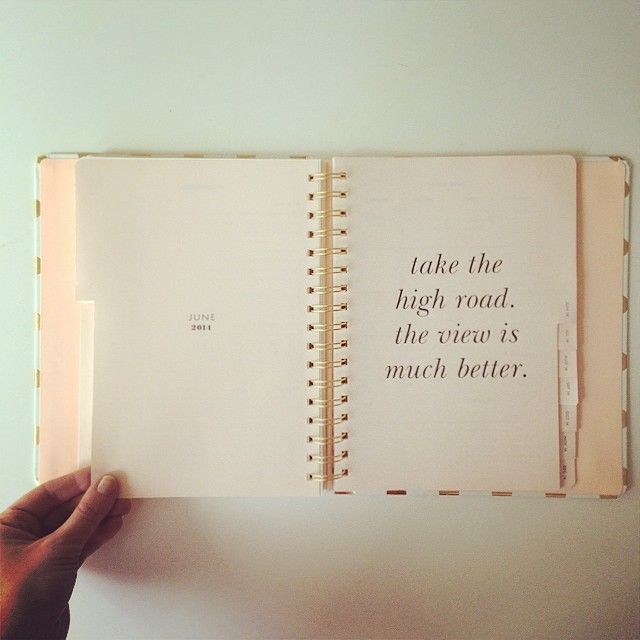 JUNE
2014
take the
high road.
the view is
much better.